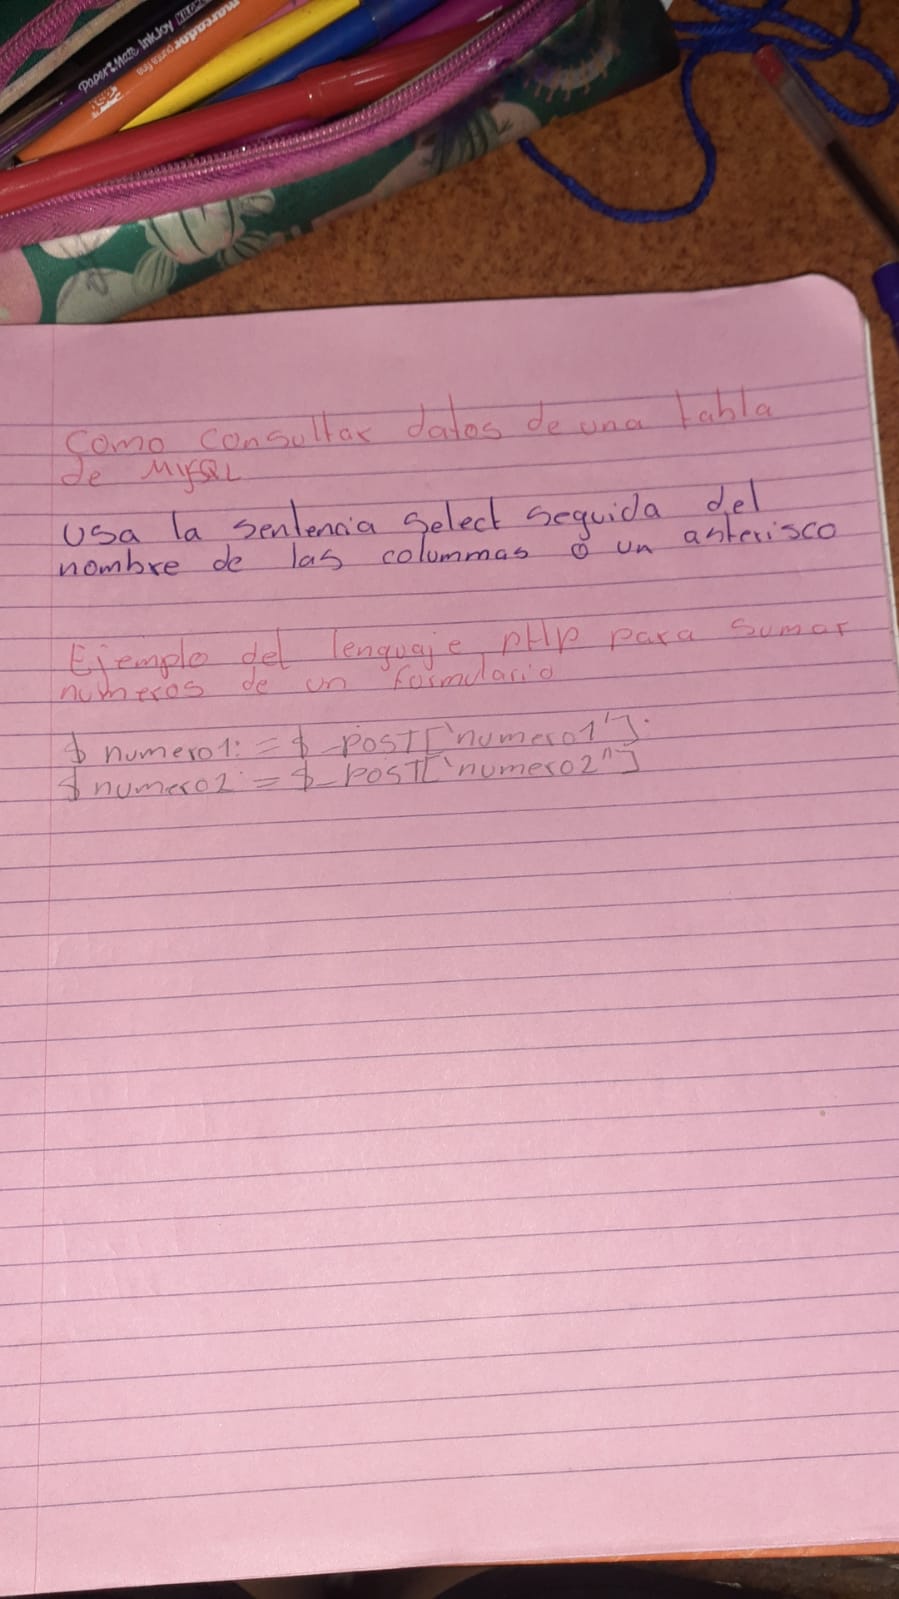 Paper Mate InkJoy
marcador
Como consultar datos de una tabla
de MySQL
Usa la sentencia Select seguida del
nombre de las colummas o un asterisco
Ejemplo del lenguaje pHp para sumar
numeros de un formulario
$ numero1: = $ _POST['numero1'];
$ numero2 = $_POST['numero2"]